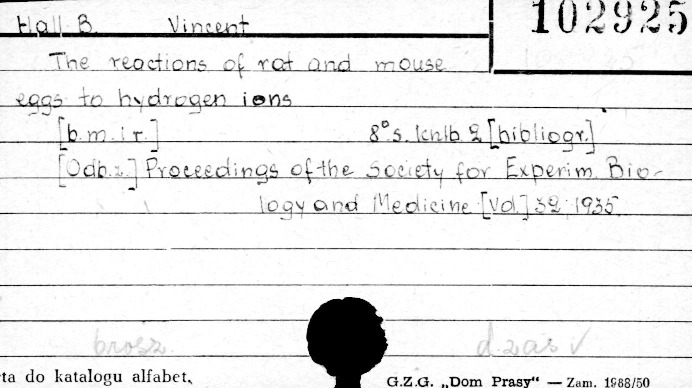 Hall B. Vincent 102925
The reactions of rat and mouse
eggs to hydrogen ions
[b.m.i r.] 8° s. 1 knlb 2 [bibliogr.]
[Odb.z.] Proceedings of the Society for Experim. Bio-
logy and Medicine [Vol.] 32 1935.
brosz.
ta do katalogu alfabet. G.Z.G. „Dom Prasy” — Zam. 1988/50